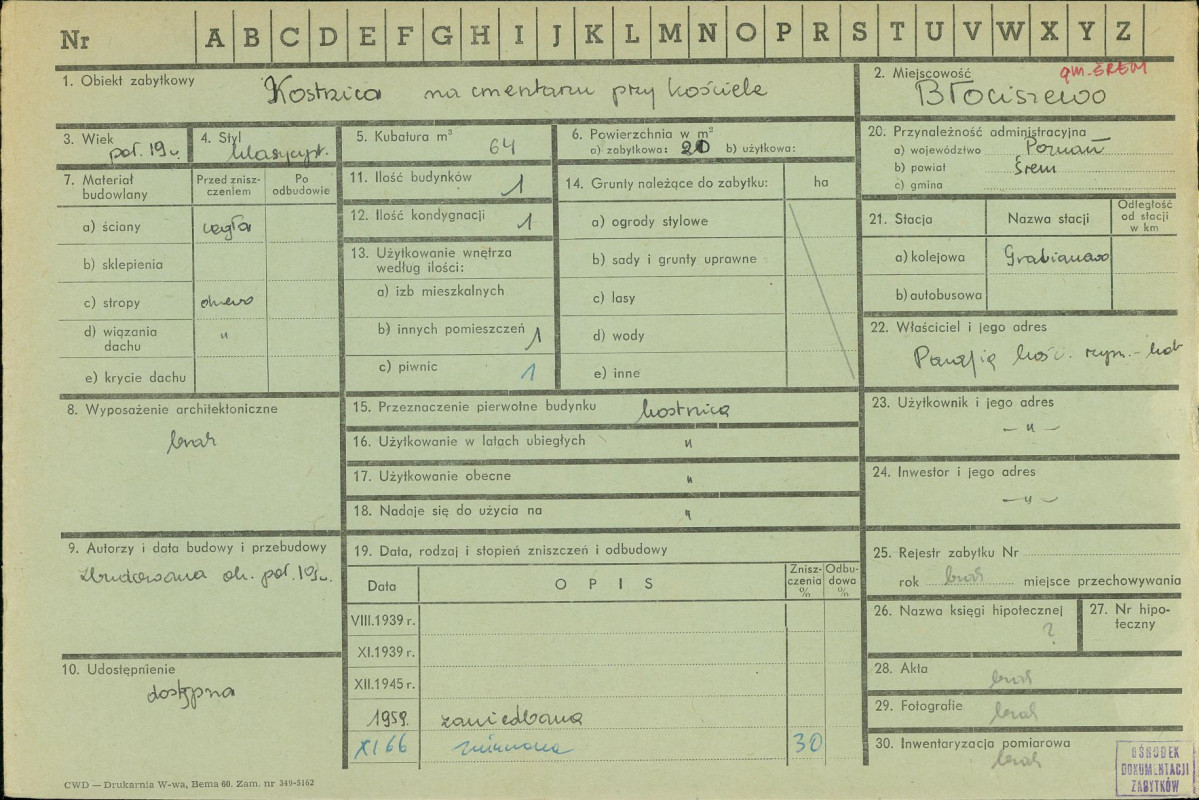 Nr A B C D E F G H I J K L M N O P R S T U V W X Y Z
1. Obiekt zabytkowy
Kostnica na cmentarzu przy kościele
2. Miejscowość
gm. ŚREM
Błociszewo
3. Wiek
poł. 19 w.
4. Styl
klasycyst.
5. Kubatura m³
64
6. Powierzchnia w m²
a) zabytkowa: 20 b) użytkowa:
7. Materiał budowlany
Przed znisz-
czeniem
Po
odbudowie
a) ściany cegła
b) sklepienia
c) stropy drewo
d) wiązania
dachu "
e) krycie dachu
8. Wyposażenie architektoniczne
brak
9. Autorzy i data budowy i przebudowy
Zbudowana ok. poł. 19 w.
10. Udostępnienie
dostępna
11. Ilość budynków
1
12. Ilość kondygnacji
1
13. Użytkowanie wnętrza
według ilości:
a) izb mieszkalnych
b) innych pomieszczeń 1
c) piwnic 1
14. Grunty należące do zabytku: ha
a) ogrody stylowe
b) sady i grunty uprawne
c) lasy
d) wody
e) inne
15. Przeznaczenie pierwotne budynku kostnica
16. Użytkowanie w latach ubiegłych "
17. Użytkowanie obecne "
18. Nadaje się do użycia na "
19. Data, rodzaj i stopień zniszczeń i odbudowy
Data OPIS
Znisz-
czenia
%
Odbu-
dowa
%
VIII.1939 r.
XI.1939 r.
XII.1945 r.
1959. zaniedbana
XI 66 30
20. Przynależność administracyjna
a) województwo Poznań
b) powiat Śrem
c) gmina
21. Stacja Nazwa stacji
Odległość
od stacji
w km
a) kolejowa Grabianowo
b) autobusowa
22. Właściciel i jego adres
Parafia kość. rzym.-kat
23. Użytkownik i jego adres
— " —
24. Inwestor i jego adres
— " —
25. Rejestr zabytku Nr
rok brak miejsce przechowywania
26. Nazwa księgi hipotecznej
?
27. Nr hipo-
teczny
28. Akta
brak
29. Fotografie
brak
30. Inwentaryzacja pomiarowa
brak
OŚRODEK
DOKUMENTACJI
ZABYTKÓW
CWD — Drukarnia W-wa, Bema 60. Zam. nr 349-5162